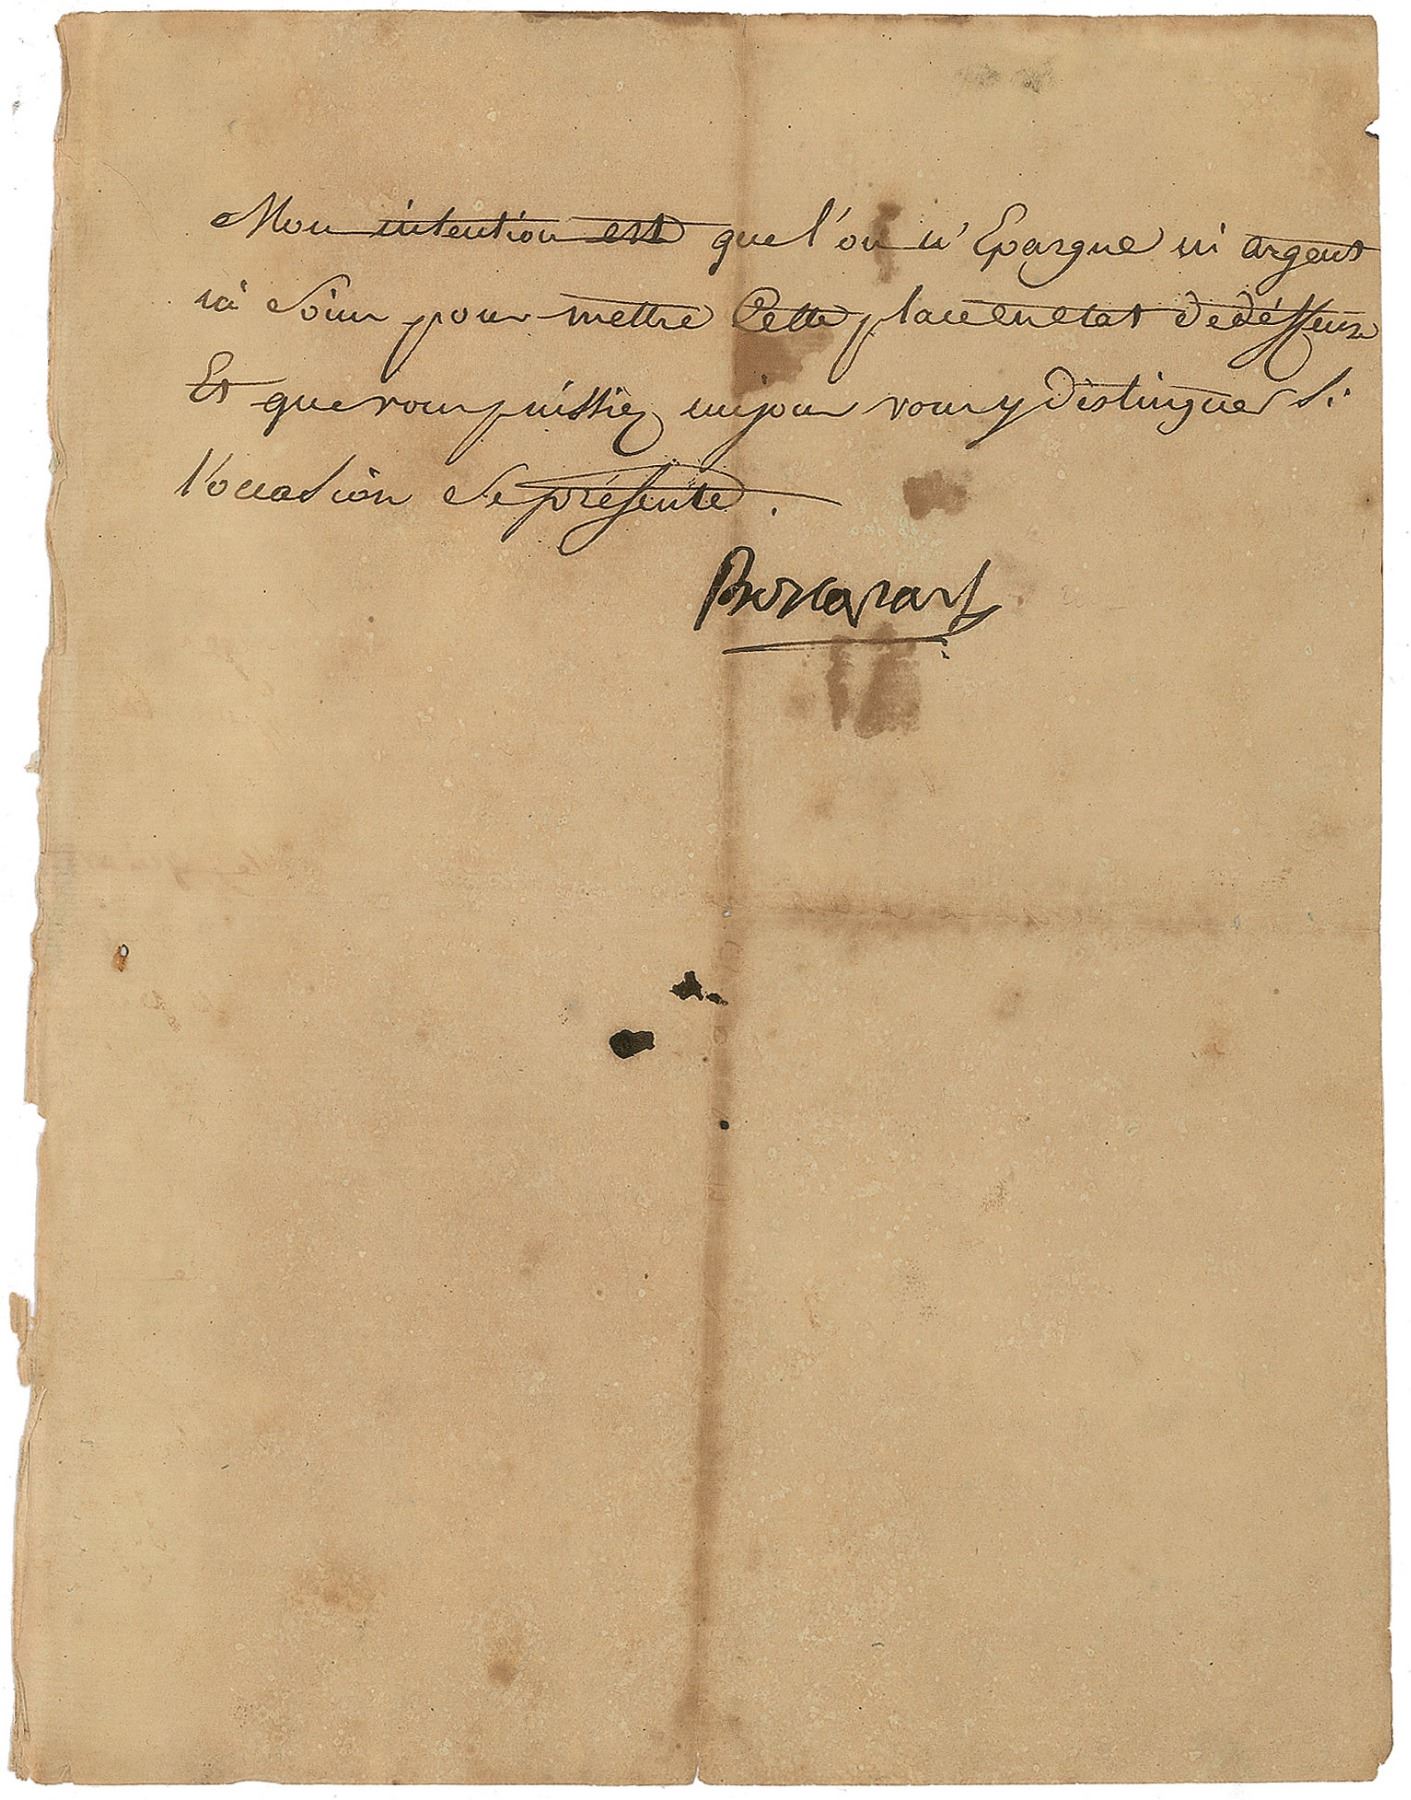 Mon intention est que l'on n'Epargne ni argent
ni Soins pour mettre Cette place en etat de déffense
Et que vous puissiez un jour vous y distinguer Si
l'occasion Se présente.
Bonaparte